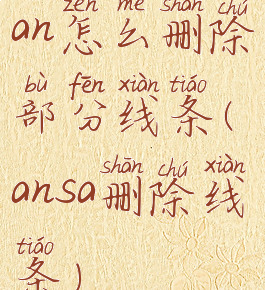 zěn me shān chú
an怎么删除
bù fēn xiàn tiáo
部分线条(
shān chú xiàn
ansa删除线
tiáo
条)